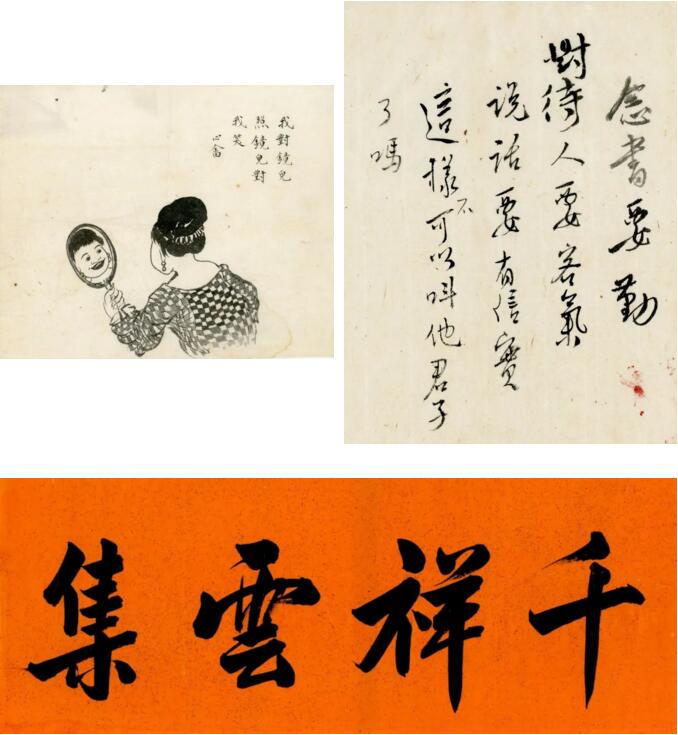 我對鏡兒
照鏡兒對
我笑
心畬
念書要勤
對待人要客氣
说话要有信實
這樣不可以叫他君子
了嗎
千祥雲集